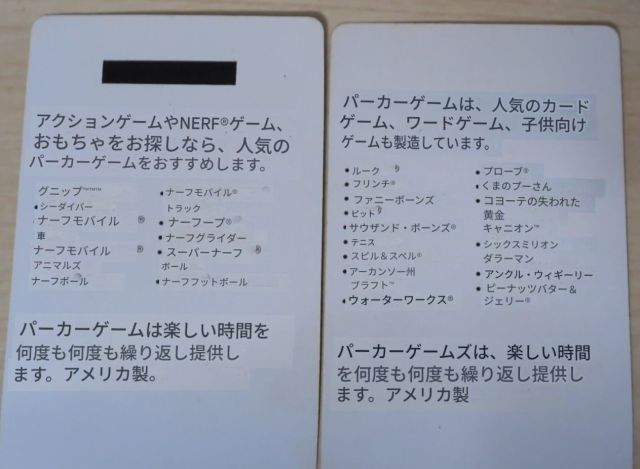 アクションゲームやNERF®ゲーム、
おもちゃをお探しなら、人気の
パーカーゲームをおすすめします。
グニップ™™™
シーダイバー
ナーフモバイル®
車
ナーフモバイル®
アニマルズ
ナーフボール
ナーフモバイル®
トラック
ナーフープ®
ナーフグライダー
スーパーナーフ®
ボール
ナーフフットボール
パーカーゲームは楽しい時間を
何度も何度も繰り返し提供し
ます。アメリカ製。
パーカーゲームは、人気のカード
ゲーム、ワードゲーム、子供向け
ゲームも製造しています。
ルーク
フリンチ®
ファニーボーンズ
ピット
サウザンド・ボーンズ®
テニス
スピル＆スペル®
アーカンソー州
ブラフト™
ウォーターワークス®
プローブ®
くまのプーさん
コヨーテの失われた
黄金
キャニオン™
シックスミリオン
ダラーマン
アンクル・ウィギーリー
ピーナッツバター＆
ジェリー®
パーカーゲームズは、楽しい時間
を何度も何度も繰り返し提供し
ます。アメリカ製